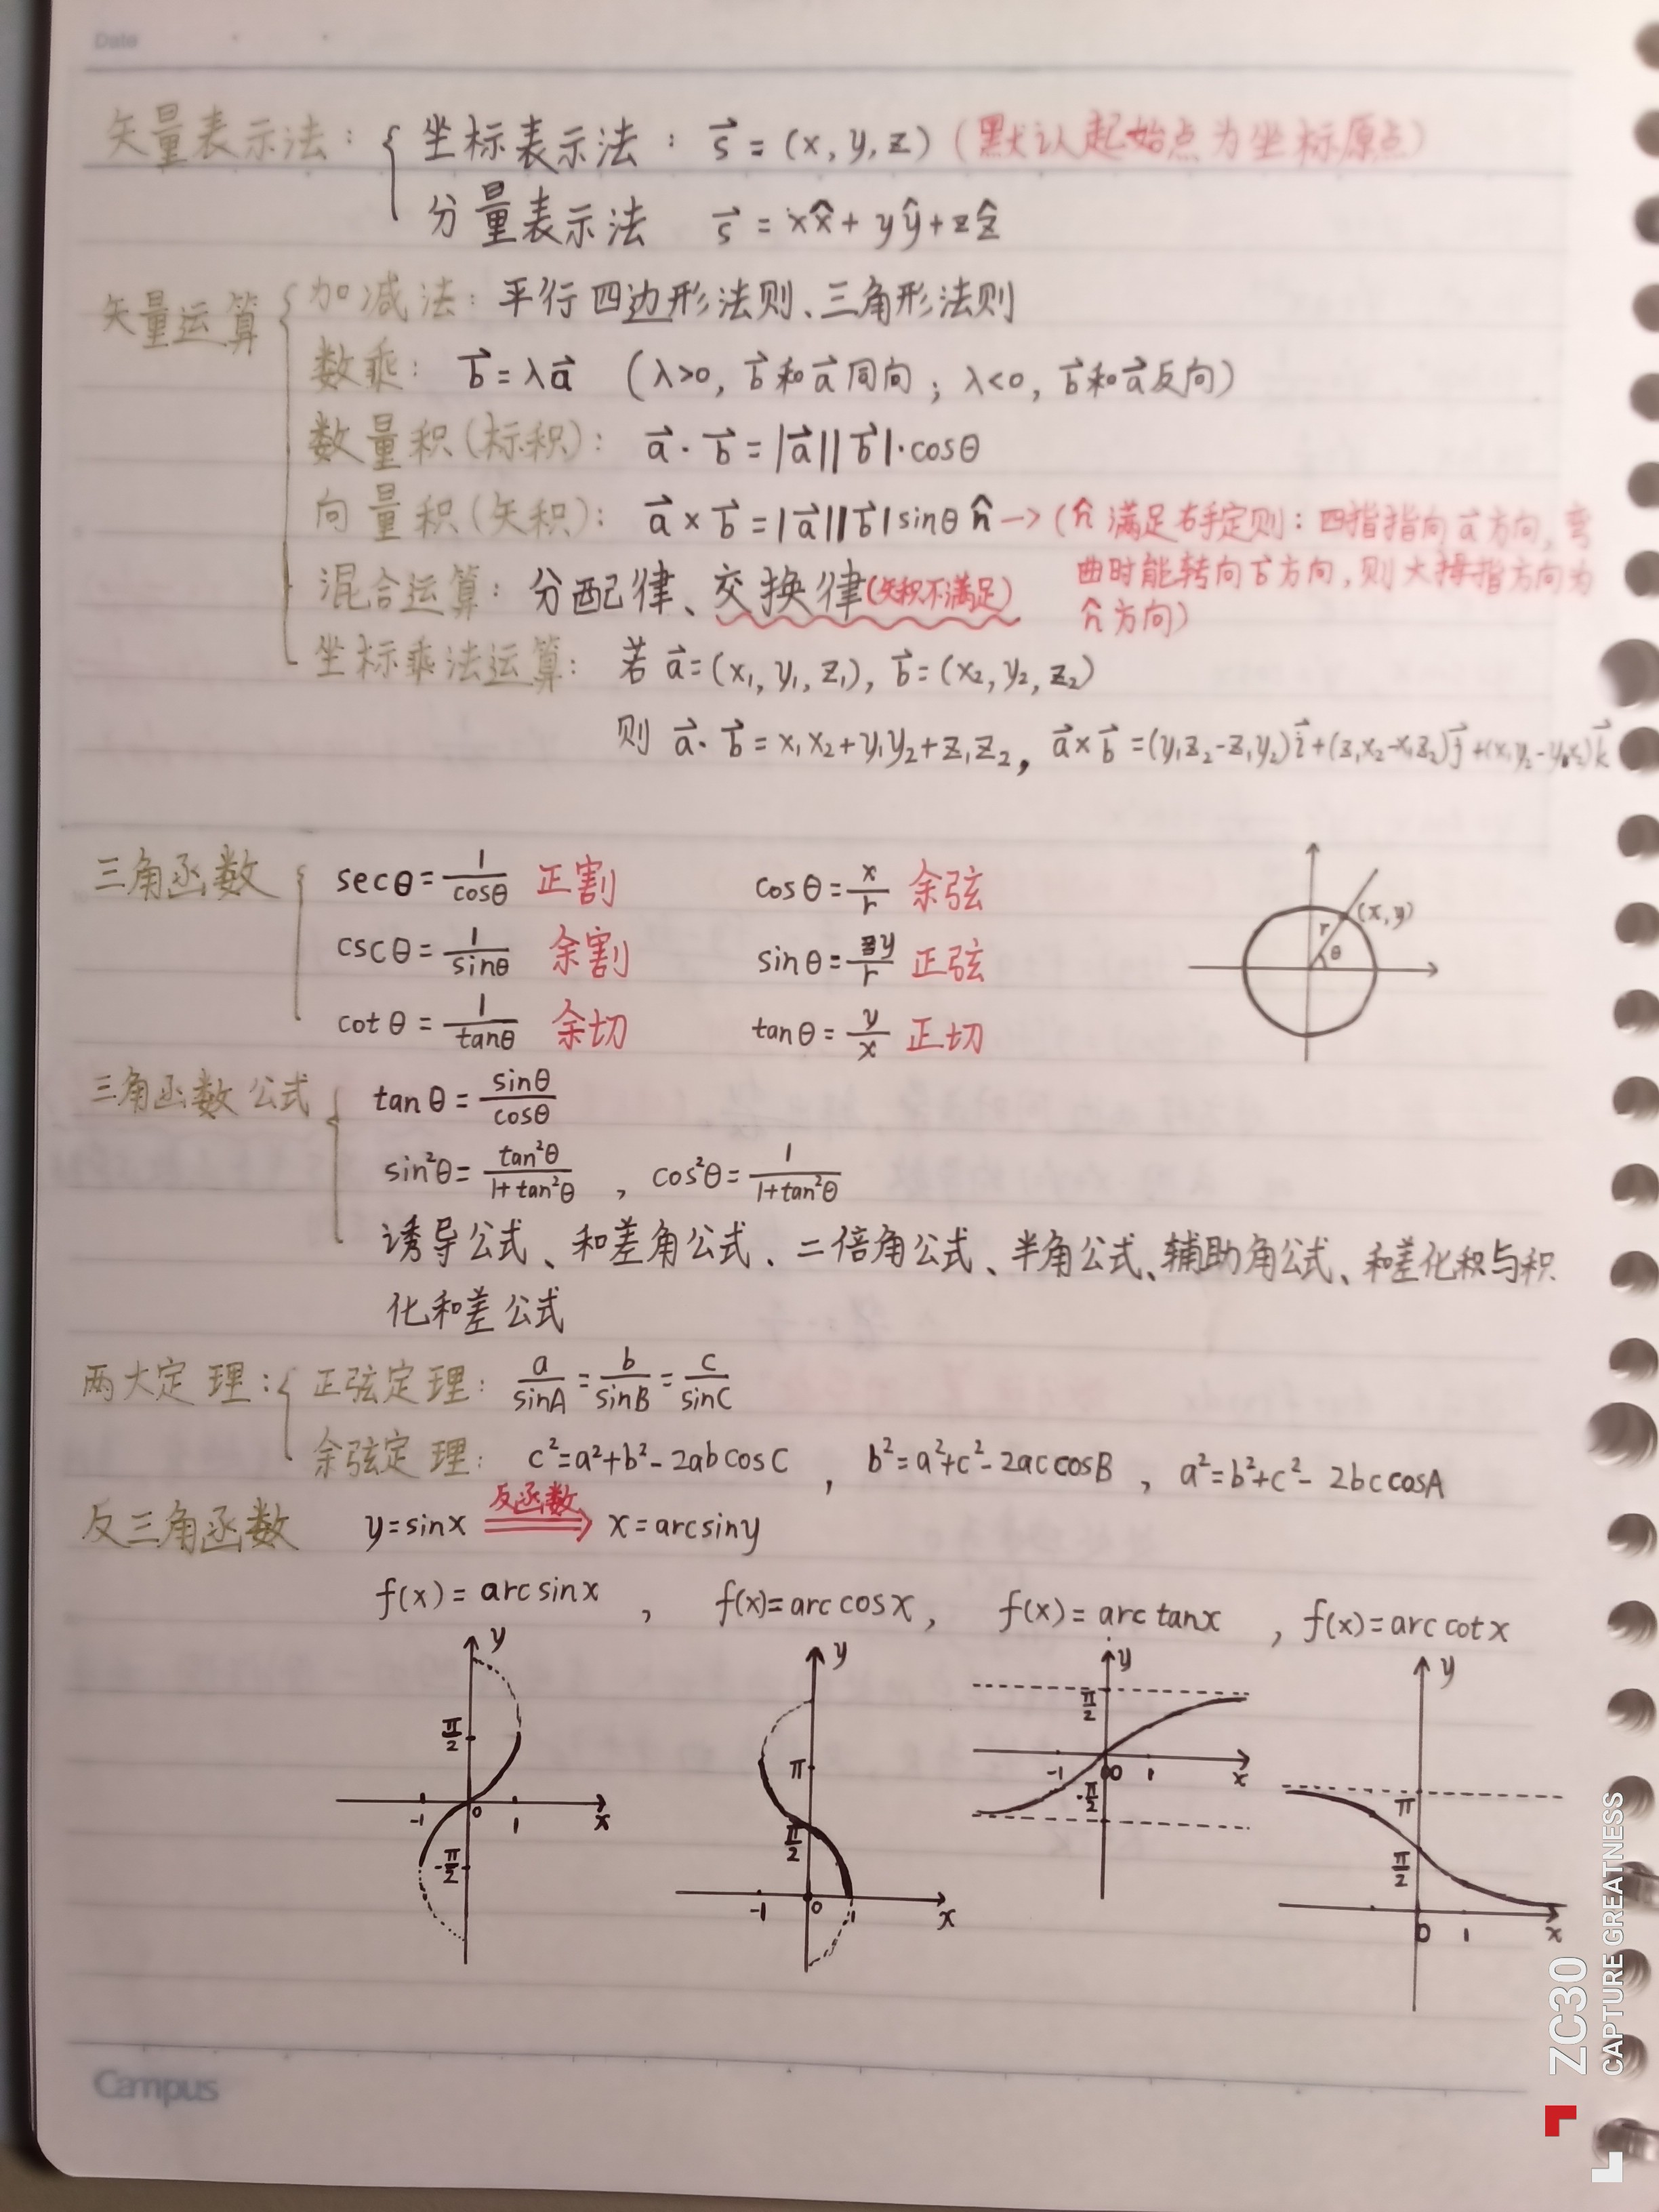 Date
矢量表示法：{ 坐标表示法：s⃗ = (x, y, z)（默认起始点为坐标原点）
分量表示法 s⃗ = xx̂ + yŷ + zẑ
矢量运算 { 加减法：平行四边形法则、三角形法则
数乘：b⃗ = λa⃗ （λ>0, b⃗和a⃗同向；λ<0, b⃗和a⃗反向）
数量积(标积)：a⃗ · b⃗ = |a⃗||b⃗|·cosθ
向量积(矢积)：a⃗ × b⃗ = |a⃗||b⃗|sinθ n̂ → (n̂ 满足右手定则：四指指向a⃗方向, 弯
曲时能转向b⃗方向, 则大拇指方向为
n̂方向)
混合运算：分配律、交换律(矢积不满足)
坐标乘法运算：若 a⃗=(x₁, y₁, z₁), b⃗=(x₂, y₂, z₂)
则 a⃗·b⃗ = x₁x₂+y₁y₂+z₁z₂, a⃗×b⃗ =(y₁z₂-z₁y₂)i⃗+(z₁x₂-x₁z₂)j⃗+(x₁y₂-y₁x₂)k⃗
三角函数 { secθ = 1/cosθ 正割 cosθ = x/r 余弦
cscθ = 1/sinθ 余割 sinθ = y/r 正弦
cotθ = 1/tanθ 余切 tanθ = y/x 正切
(x,y)
r
θ
三角函数公式 { tanθ = sinθ/cosθ
sin²θ = tan²θ/1+tan²θ , cos²θ = 1/1+tan²θ
诱导公式、和差角公式、二倍角公式、半角公式、辅助角公式、和差化积与积
化和差公式
两大定理：{ 正弦定理：a/sinA = b/sinB = c/sinC
余弦定理：c²=a²+b²-2abcosC , b²=a²+c²-2accosB , a²=b²+c²-2bccosA
反三角函数 y=sinx 反函数 ⇒ x=arcsiny
f(x)=arcsinx , f(x)=arccosx , f(x)=arctanx , f(x)=arccotx
y π/2 -1 0 1 x -π/2
y π π/2 -1 0 1 x
y π/2 -1 0 1 x -π/2
y π π/2 0 1 x
Campus
ZC30
CAPTURE GREATNESS